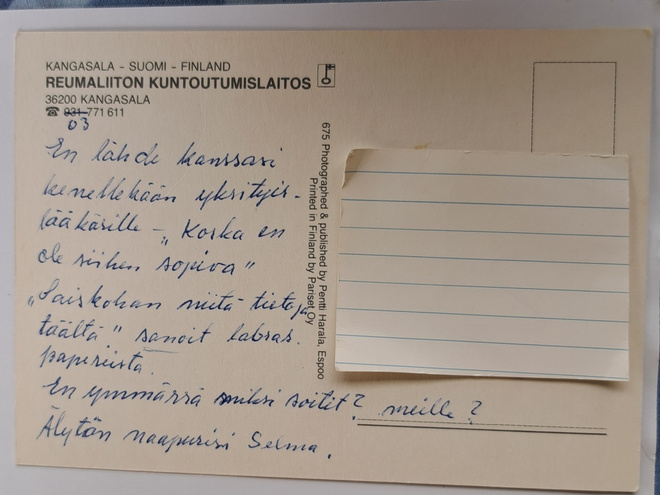 KANGASALA - SUOMI - FINLAND
REUMALIITON KUNTOUTUMISLAITOS
36200 KANGASALA
☎ 931-771 611
03
675 Photographed & published by Pentti Harala, Espoo
Printed in Finland by Pariset Oy
En lähde kanssasi
kenellekään yksityis-
lääkärille - "Koska en
ole siihen sopiva"
"Saiskohan niitä tietoja
täältä" sanoit labras.
papereista.
En ymmärrä miksi soitit? meille?
Älytön naapurisi Selma.